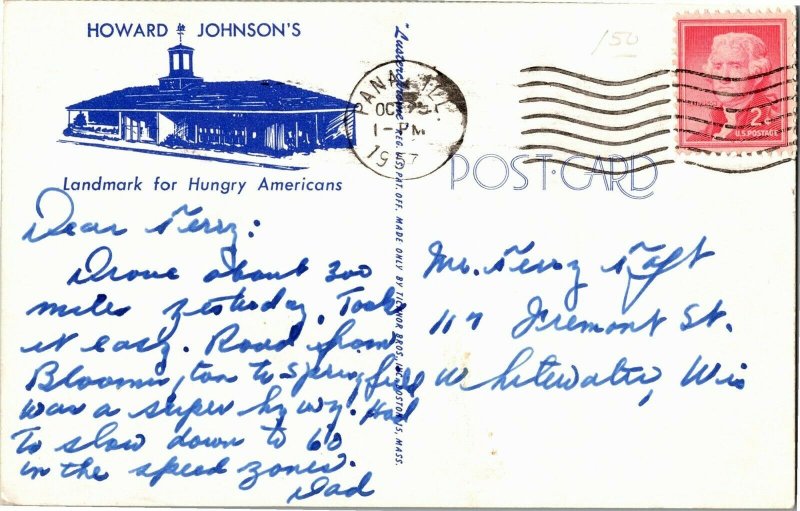 HOWARD JOHNSON'S
Landmark for Hungry Americans
Dear Terry:
Drove about 300
miles yesterday. Took
it easy. Road from
Bloomington to Springfield
was a super hy wy. Had
to slow down to 60
in the speed zones.
Dad
"Lusterchrome" REG. U.S. PAT. OFF. MADE ONLY BY TICHNOR BROS., INC., BOSTON 15, MASS.
OCT
1-PM
150
2¢
U.S. POSTAGE
POST-CARD
Mr. Terry Taft
117 Fremont St.
Whitewater, Wis